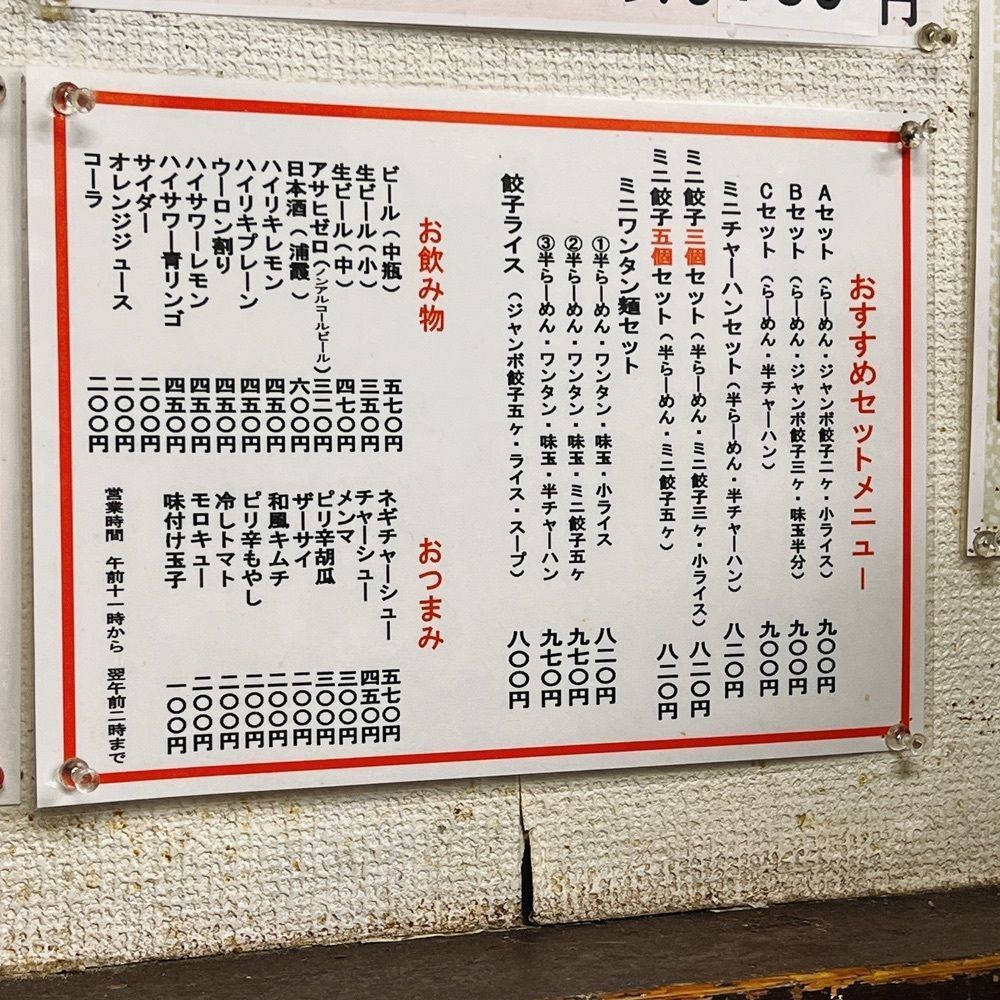 円
おすすめセットメニュー
Aセット（らーめん・ジャンボ餃子二ヶ・小ライス）　九〇〇円
Bセット（らーめん・ジャンボ餃子三ヶ・味玉半分）　九〇〇円
Cセット（らーめん・半チャーハン）　九〇〇円
ミニチャーハンセット（半らーめん・半チャーハン）　八二〇円
ミニ餃子三個セット（半らーめん・ミニ餃子三ヶ・小ライス）　八二〇円
ミニ餃子五個セット（半らーめん・ミニ餃子五ヶ）　八二〇円
ミニワンタン麺セット
①半らーめん・ワンタン・味玉・小ライス　八二〇円
②半らーめん・ワンタン・味玉・ミニ餃子五ヶ　九七〇円
③半らーめん・ワンタン・味玉・半チャーハン　九七〇円
餃子ライス（ジャンボ餃子五ヶ・ライス・スープ）　八〇〇円
お飲み物
ビール（中瓶）　五七〇円
生ビール（小）　三五〇円
生ビール（中）　四七〇円
アサヒゼロ（ノンアルコールビール）　三二〇円
日本酒（浦霞）　六〇〇円
ハイリキレモン　四五〇円
ハイリキプレーン　四五〇円
ウーロン割り　四五〇円
ハイサワーレモン　四五〇円
ハイサワー青リンゴ　四五〇円
サイダー　二〇〇円
オレンジジュース　二〇〇円
コーラ　二〇〇円
おつまみ
ネギチャーシュー　五七〇円
チャーシュー　四五〇円
メンマ　三〇〇円
ピリ辛胡瓜　三〇〇円
ザーサイ　二〇〇円
和風キムチ　二〇〇円
ピリ辛もやし　二〇〇円
冷しトマト　二〇〇円
モロキュー　二〇〇円
味付け玉子　一〇〇円
営業時間　午前十一時から　翌午前二時まで